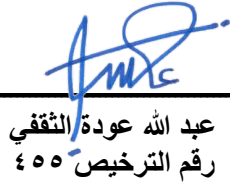 عبد الله عودة الثقفي
رقم الترخيص ٤٥٥